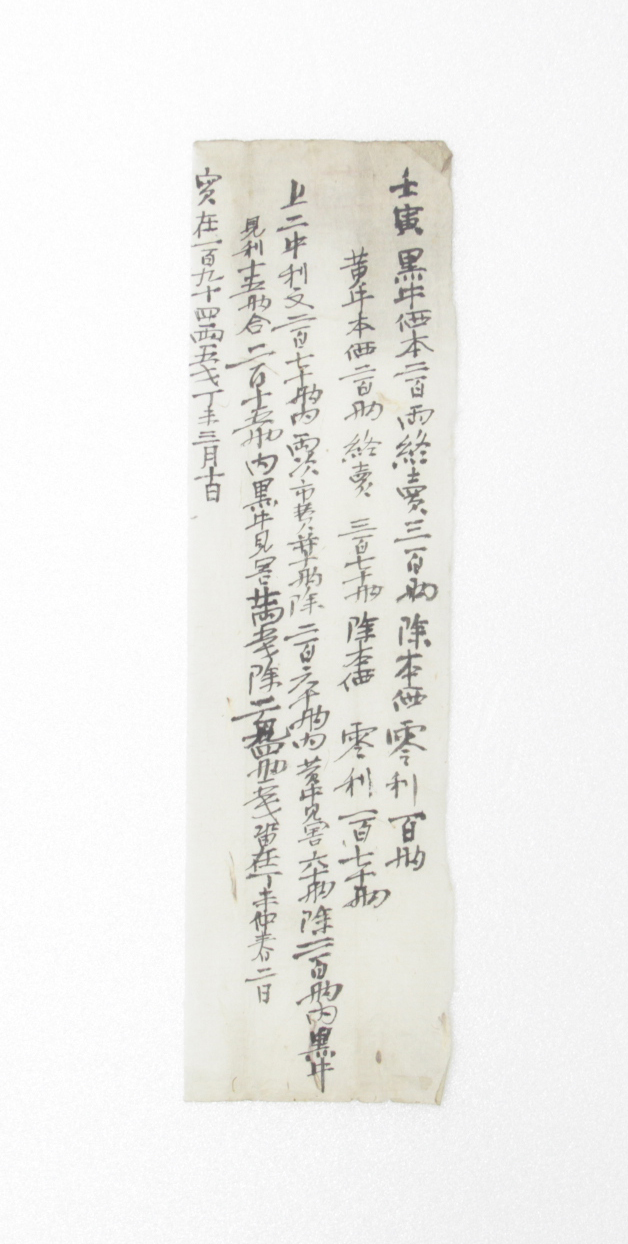 壬寅 黑牛価本二百兩終賣三百兩 除本価 零利百兩
黃牛本価二百兩 終賣 三百七十兩 除本価 零利一百七十兩
上二牛利文二百七十兩內 兩次市費 十兩除 二百六十兩內 黃牛見害六十兩除 二百兩內 黑牛
見利十五兩合二百十五兩內黑牛見害 兩五戔除 四兩五戔留在丁未仲春二日
實在一百九十四兩五戔丁未三月十日